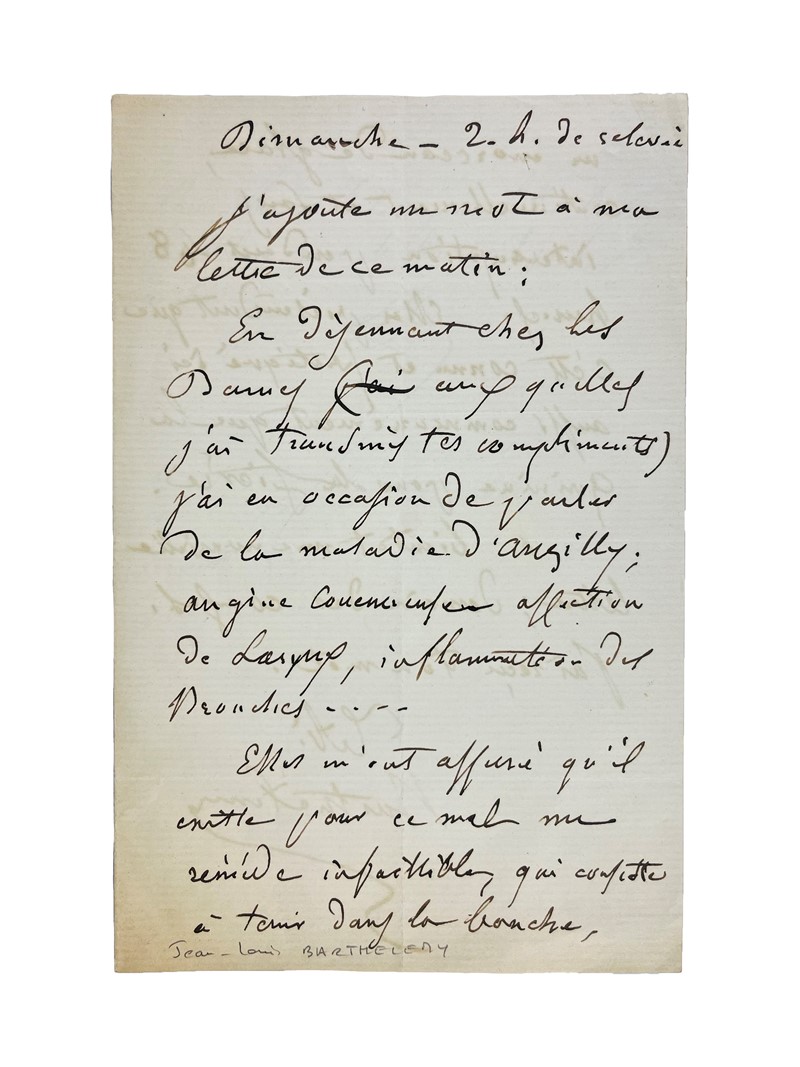 Dimanche - 2. h. de relevée
j'ajoute un mot à ma
lettre de ce matin;
En déjeunant chez les
Dames (j'ai aux quelles
j'ai transmis tes compliments)
j'ai eu occasion de parler
de la maladie d'
angine Couenneuse affection
de Larynx, inflammation des
Bronches ----
Elles m'ont assuré qu'il
existe pour ce mal un
reméde infaillible, qui consiste
à tenir dans la bouche,
Jean-Louis BARTHELEMY